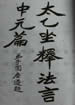 太乙坐釋法言
中元篇
題